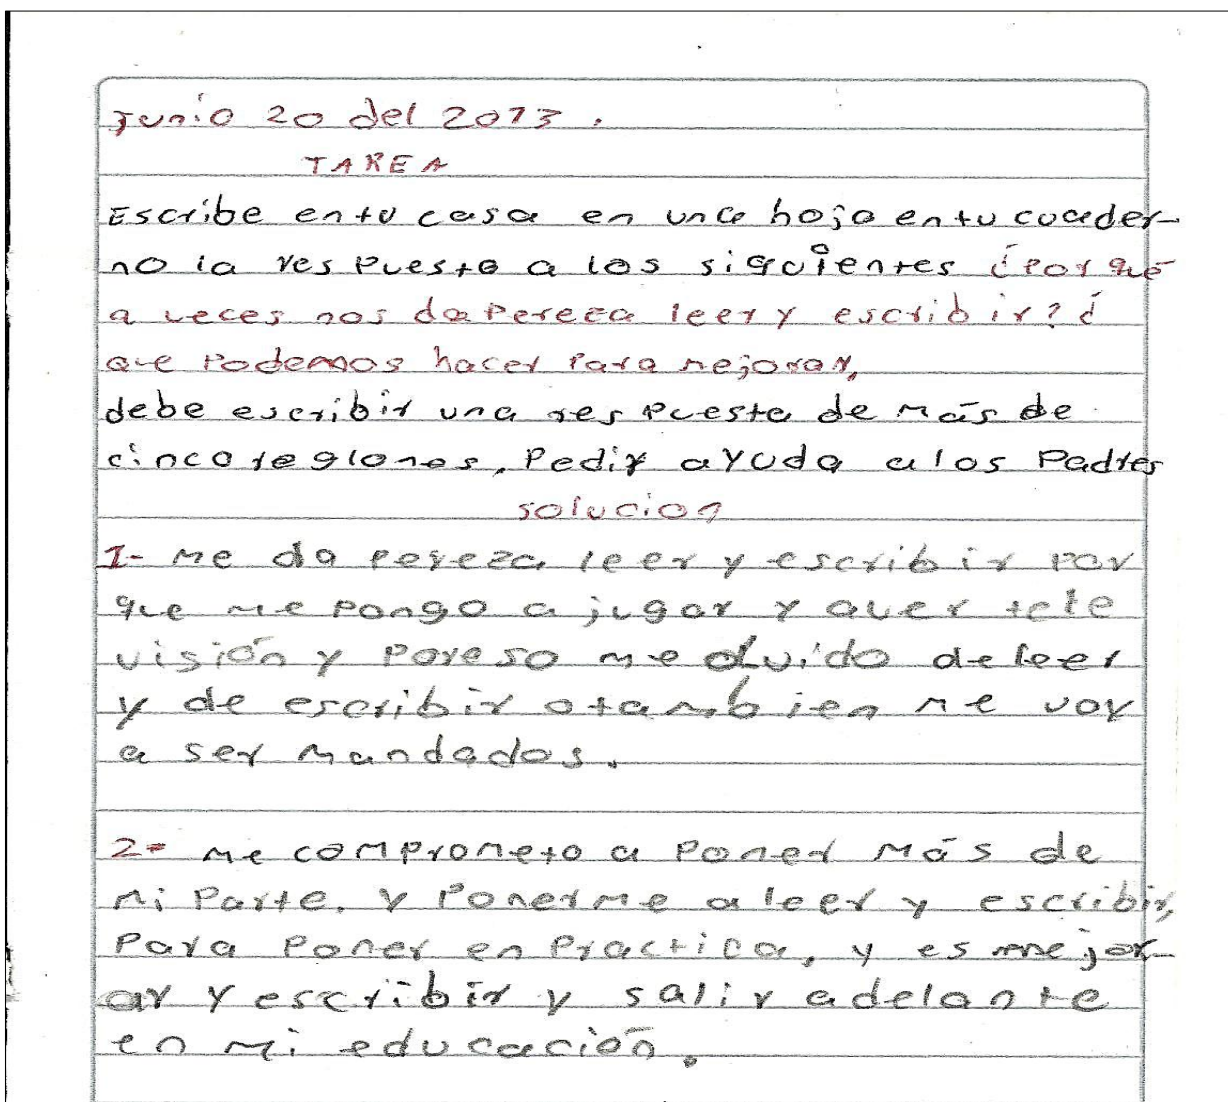 Junio 20 del 2013.
TAREA
Escribe en tu casa en una hoja en tu cuader-
no la respuesta a los siguientes ¿por qué
a veces nos da pereza leer y escribir? ¿
que podemos hacer para mejorar,
debe escribir una respuesta de más de
cinco reglones. Pedir ayuda a los Padres
solucion
1- me da pereza leer y escribir por
que me pongo a jugar y aver tele
visión y poreso me olvido de leer
y de escribir o tambien me voy
a ser mandados.
2- me comprometo a poner más de
mi parte. y ponerme a leer y escribir,
para poner en practica, y es mejor-
ar y escribir y salir adelante
en mi educación.